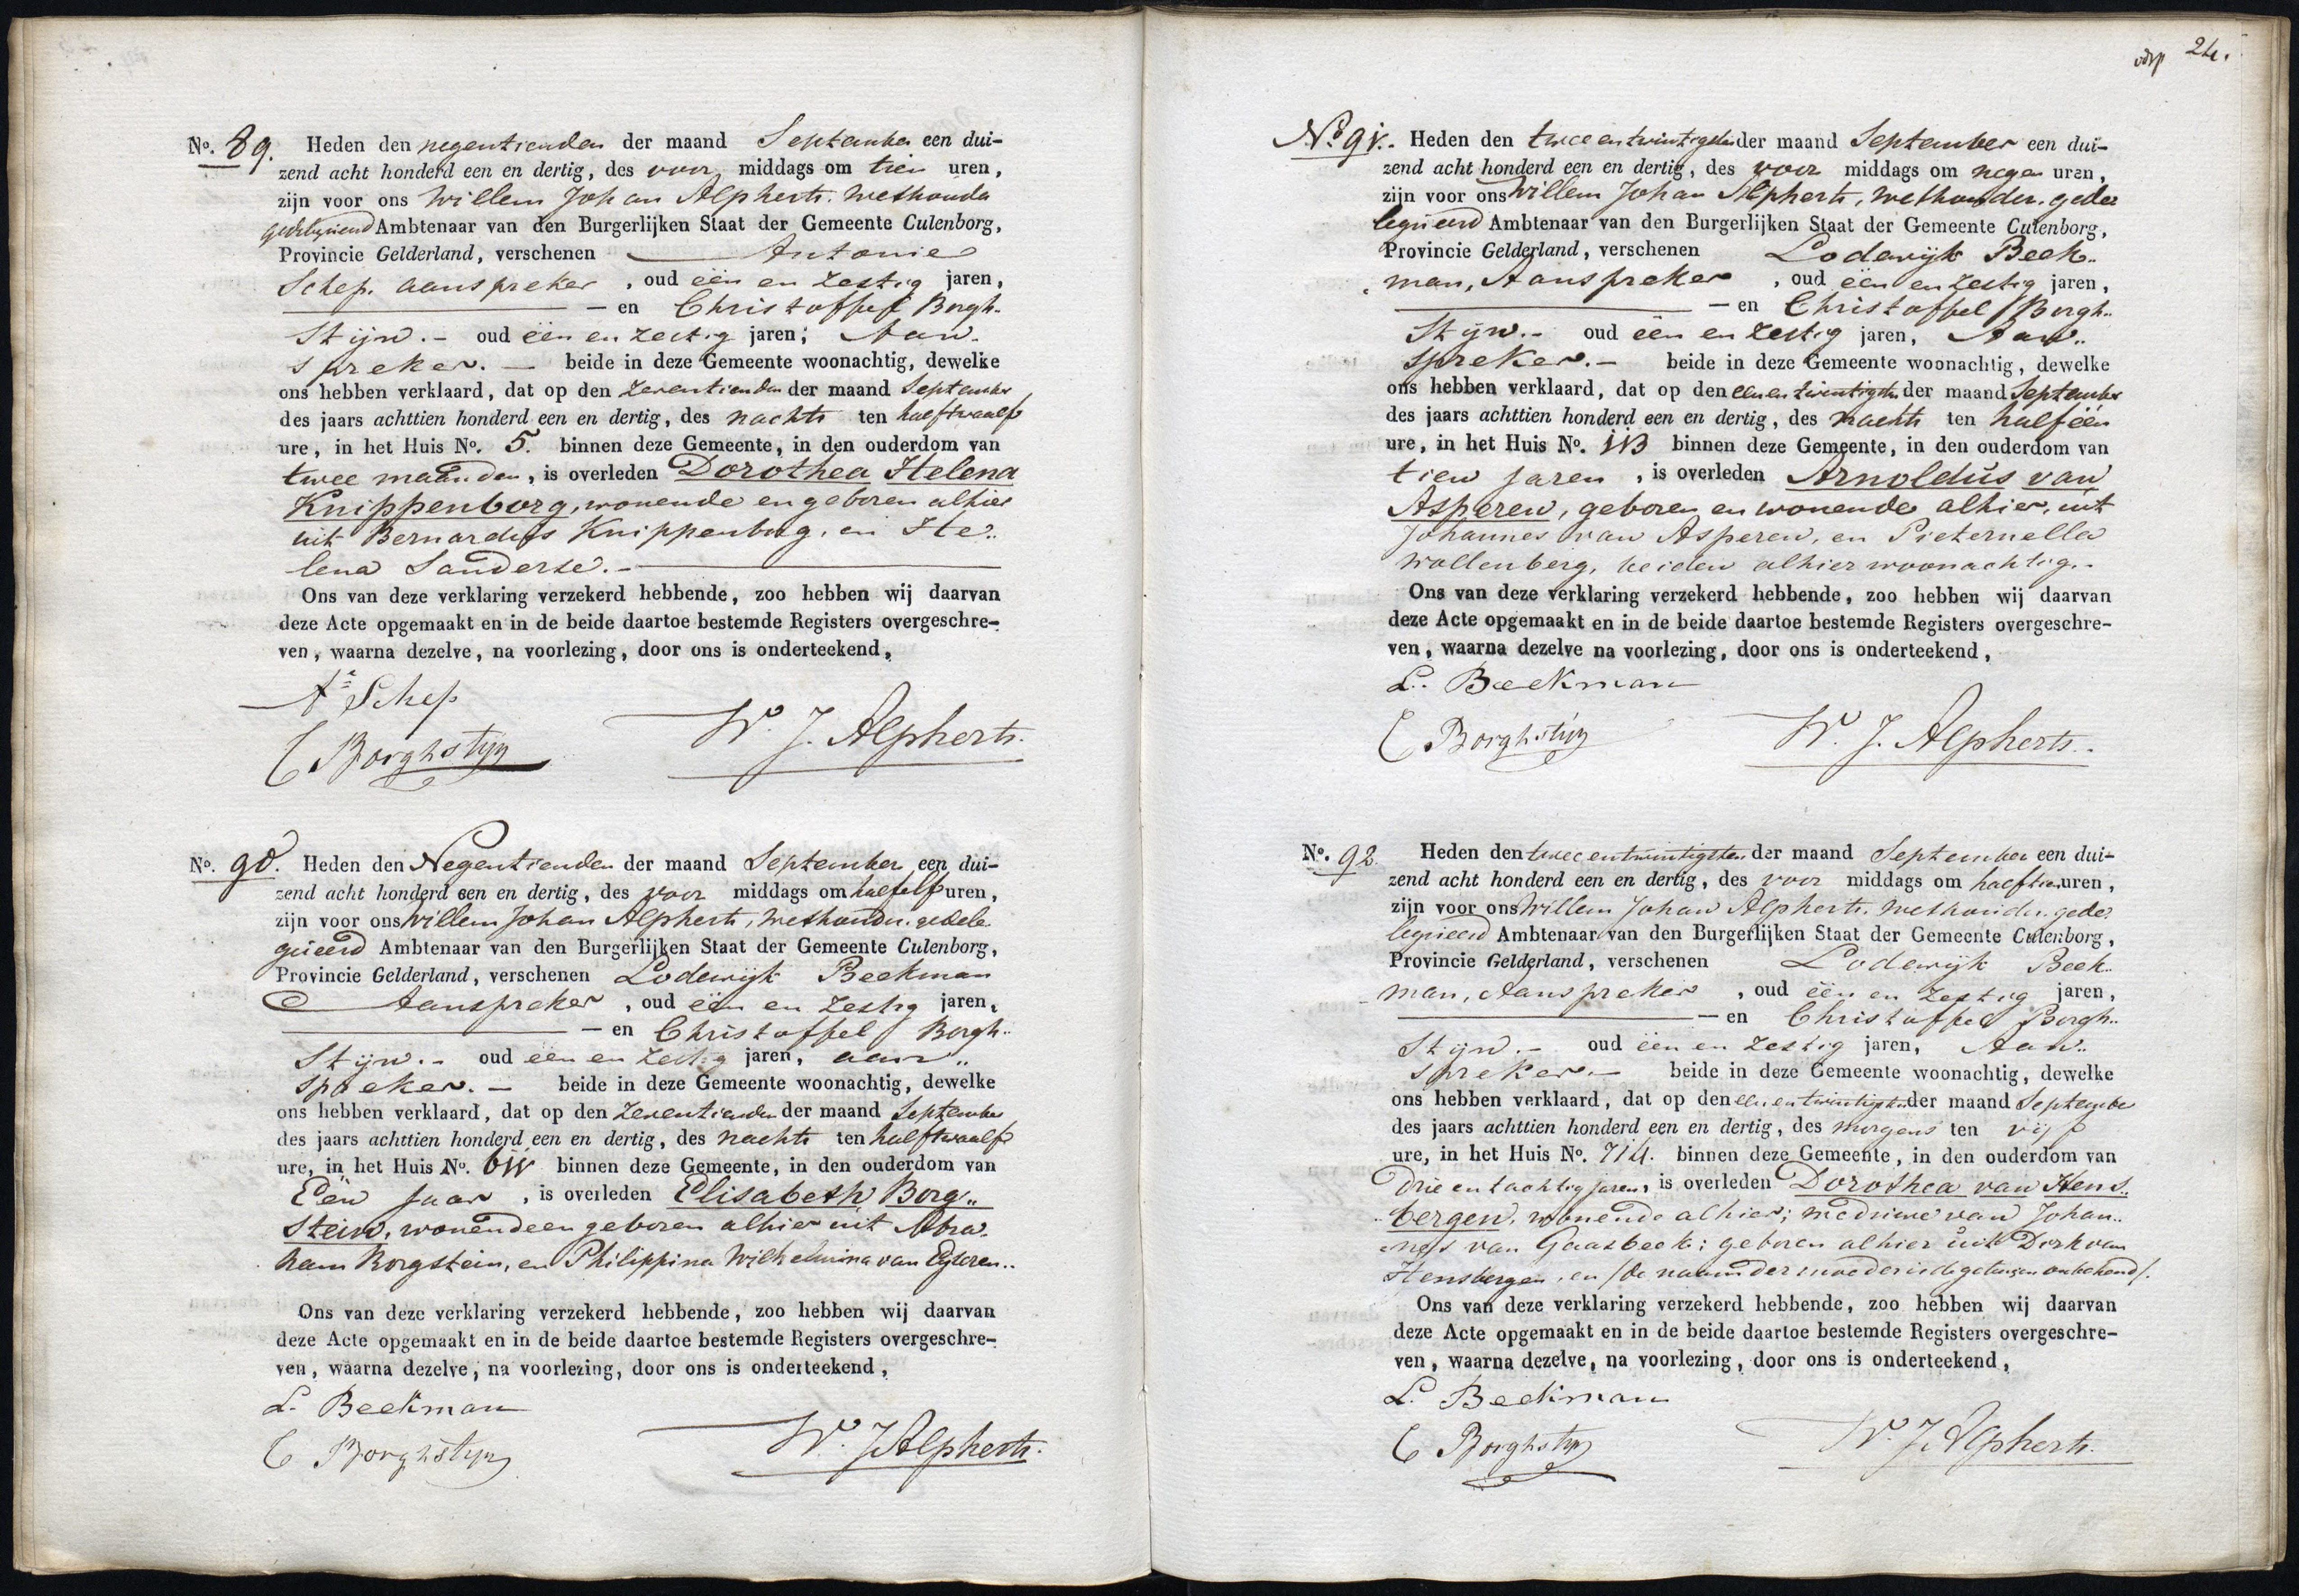 No. 89. Heden den negentienden der maand September een dui-
zend acht honderd een en dertig, des voor middags om tien uren,
zijn voor ons Willem Johan Alpherts. Wethouder
gedelegueerd Ambtenaar van den Burgerlijken Staat der Gemeente Culenborg,
Provincie Gelderland, verschenen Antonie
Schep. aanspreker, oud één en zestig jaren,
— en Christoffel Borgh-
stijn.- oud één en zestig jaren; Aan-
spreker. — beide in deze Gemeente woonachtig, dewelke
ons hebben verklaard, dat op den zeventienden der maand September
des jaars achttien honderd een en dertig, des nachts ten halftwaalf
ure, in het Huis No. 5. binnen deze Gemeente, in den ouderdom van
twee maanden, is overleden Dorothea Helena
Knippenborg, wonende en geboren alhier
uit Bernardus Knippenborg, en He..
lena Sanderse.-
Ons van deze verklaring verzekerd hebbende, zoo hebben wij daarvan
deze Acte opgemaakt en in de beide daartoe bestemde Registers overgeschre-
ven, waarna dezelve, na voorlezing, door ons is onderteekend,
Ae Schep
C Borghstijn W. J. Alpherts.
No. 90. Heden den Negentienden der maand September een dui-
zend acht honderd een en dertig, des voor middags om halfelf uren,
zijn voor ons Willem Johan Alpherts, Wethouder. gedele-
gueerd Ambtenaar van den Burgerlijken Staat der Gemeente Culenborg,
Provincie Gelderland, verschenen Lodewijk Beekman
Aanspreker, oud één en zestig jaren,
— en Christoffel Borgh..
stijn.- oud één en zestig jaren, aan..
spreker. — beide in deze Gemeente woonachtig, dewelke
ons hebben verklaard, dat op den zeventienden der maand September
des jaars achttien honderd een en dertig, des nachts ten halftwaalf
ure, in het Huis No. 611 binnen deze Gemeente, in den ouderdom van
Één Jaar, is overleden Elisabeth Borg..
stein, wonende en geboren alhier uit Abra-
ham Borgstein, en Philippina Wilhelmina van Eyteren..
Ons van deze verklaring verzekerd hebbende, zoo hebben wij daarvan
deze Acte opgemaakt en in de beide daartoe bestemde Registers overgeschre-
ven, waarna dezelve, na voorlezing, door ons is onderteekend,
L. Beekman
C Borghstijn W. J. Alpherts.
24.
No. 91. Heden den twee en twintigsten der maand September een dui-
zend acht honderd een en dertig, des voor middags om negen uren,
zijn voor ons Willem Johan Alpherts, Wethouder. gede-
legueerd Ambtenaar van den Burgerlijken Staat der Gemeente Culenborg,
Provincie Gelderland, verschenen Lodewijk Beek..
man, Aanspreker, oud één en zestig jaren,
— en Christoffel Borgh..
stijn.- oud één en zestig jaren, Aan..
spreker.- beide in deze Gemeente woonachtig, dewelke
ons hebben verklaard, dat op den een en twintigsten der maand September
des jaars achttien honderd een en dertig, des nachts ten halféén
ure, in het Huis No. 113 binnen deze Gemeente, in den ouderdom van
tien jaren, is overleden Arnoldus van
Asperen, geboren en wonende alhier, uit
Johannes van Asperen, en Pieternella
Wollenberg, beiden alhier woonachtig.-
Ons van deze verklaring verzekerd hebbende, zoo hebben wij daarvan
deze Acte opgemaakt en in de beide daartoe bestemde Registers overgeschre-
ven, waarna dezelve na voorlezing, door ons is onderteekend,
L. Beekman
C Borghstijn W. J. Alpherts.
No. 92. Heden den twee en twintigsten der maand September een dui-
zend acht honderd een en dertig, des voor middags om halftien uren,
zijn voor ons Willem Johan Alpherts. Wethouder. gede-
legueerd Ambtenaar van den Burgerlijken Staat der Gemeente Culenborg,
Provincie Gelderland, verschenen Lodewijk Beek..
man, Aanspreker, oud één en zestig jaren,
— en Christoffel Borgh..
stijn.- oud één en zestig jaren, Aan..
spreker.- beide in deze Gemeente woonachtig, dewelke
ons hebben verklaard, dat op den een en twintigsten der maand September
des jaars achttien honderd een en dertig, des morgens ten vijf
ure, in het Huis No. 714. binnen deze Gemeente, in den ouderdom van
Drie en tachtig jaren, is overleden Dorothea van Hens..
bergen, wonende alhier; weduwe van Johan..
nes van Gaasbeek; geboren alhier uit Dirk van
Hensbergen, en /de naam der moeder is de getuigen onbekend/.
Ons van deze verklaring verzekerd hebbende, zoo hebben wij daarvan
deze Acte opgemaakt en in de beide daartoe bestemde Registers overgeschre-
ven, waarna dezelve, na voorlezing, door ons is onderteekend,
L. Beekman
C Borghstijn W. J. Alpherts.